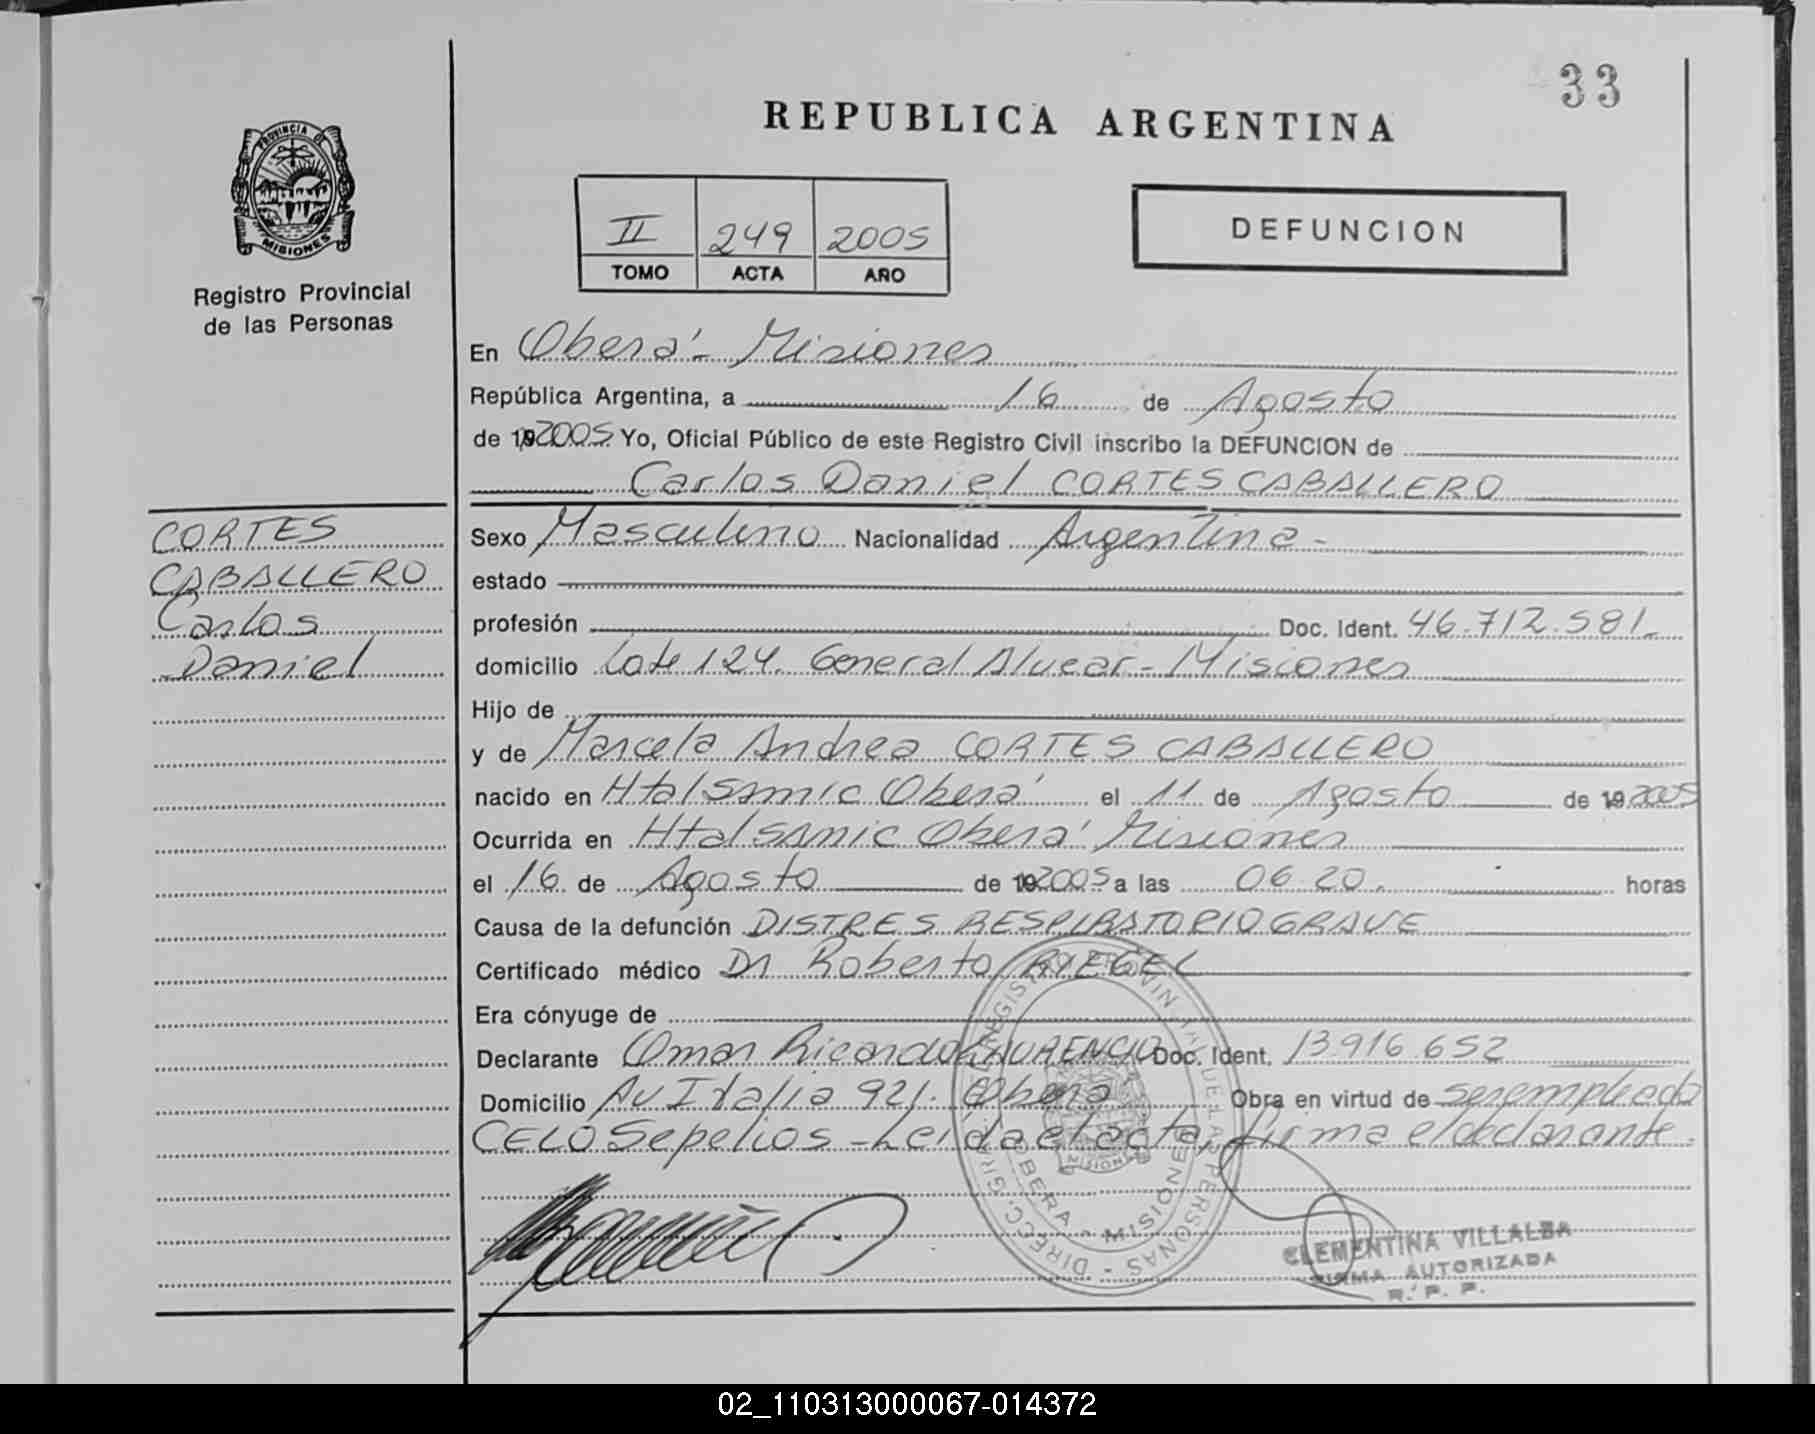 33
REPUBLICA ARGENTINA
PROVINCIA DE
MISIONES
Registro Provincial
de las Personas
II 249 2005
TOMO ACTA AÑO
DEFUNCION
En Oberá - Misiones
República Argentina, a 16 de Agosto
de 19 2005 Yo, Oficial Público de este Registro Civil inscribo la DEFUNCION de
Carlos Daniel CORTES CABALLERO
CORTES
CABALLERO
Carlos
Daniel
Sexo Masculino Nacionalidad Argentina -
estado
profesión Doc. Ident. 46.712.581-
domicilio Lote 124. General Alvear - Misiones
Hijo de
y de Marcela Andrea CORTES CABALLERO
nacido en Htal SAMIC Oberá el 11 de Agosto de 19 2005
Ocurrida en Htal SAMIC Oberá Misiones
el 16 de Agosto de 19 2005 a las 06 20. horas
Causa de la defunción DISTRES RESPIRATORIO GRAVE
Certificado médico Dr Roberto RIEGEL
Era cónyuge de
Declarante Omar Ricardo Doc. Ident. 13916.652
Domicilio Av Italia 921. Oberá Obra en virtud de ser empleado
CELO Sepelios - Leida el acta, firma el declarante.
OBERA - MISIONES
CLEMENTINA VILLALBA
FIRMA AUTORIZADA
R. P. P.
02_110313000067-014372